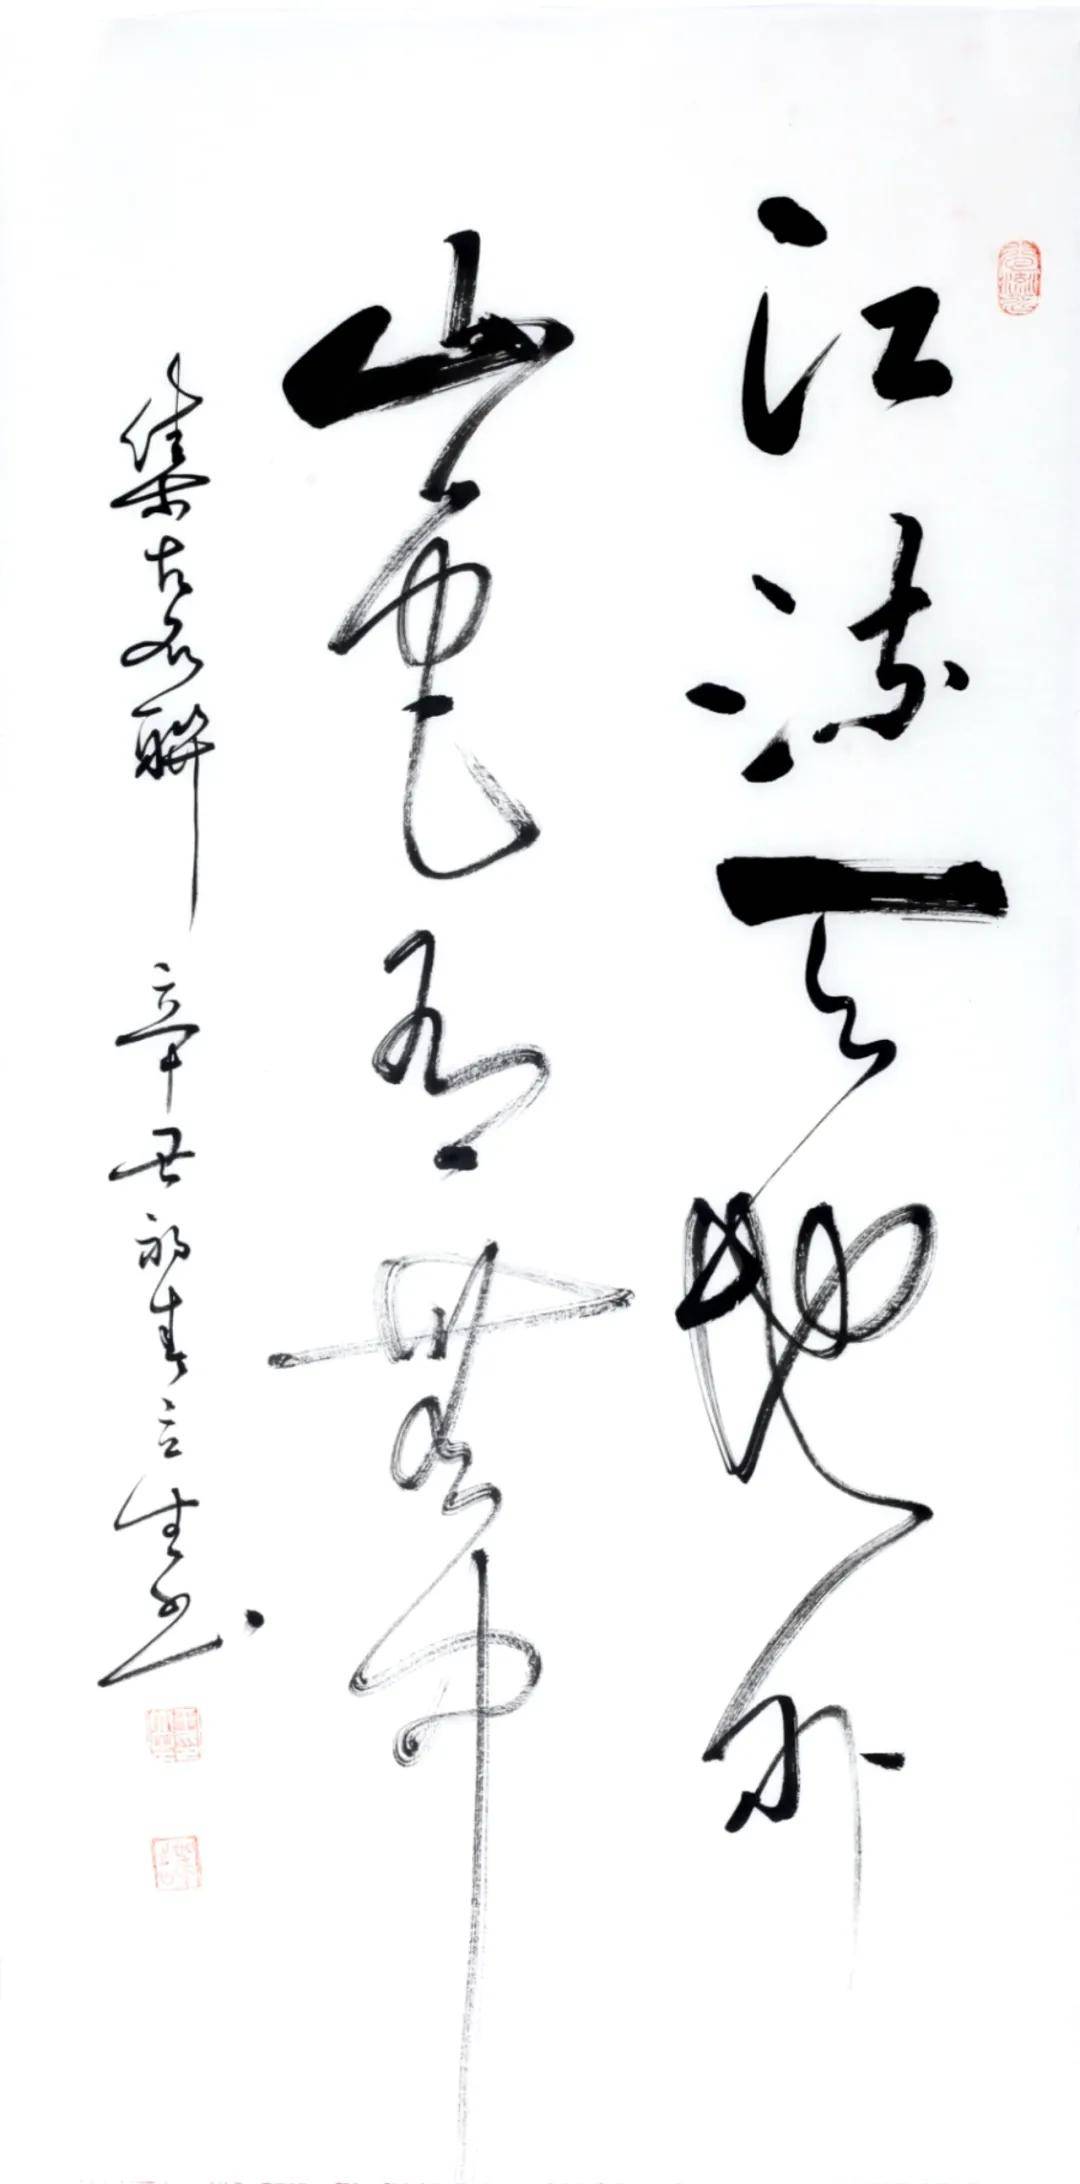 江流天地外
山色有无中
集古名联 辛丑初春立生书